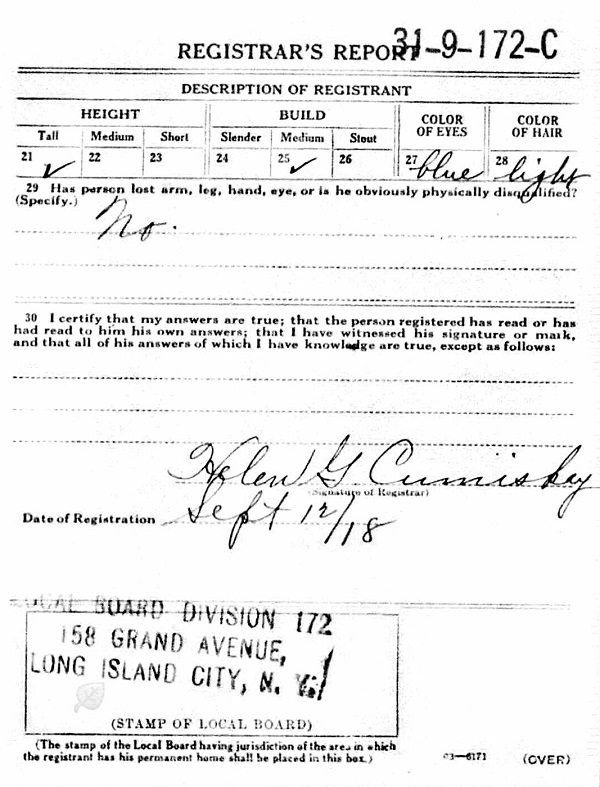 REGISTRAR'S REPORT 31-9-172-C
DESCRIPTION OF REGISTRANT
HEIGHT BUILD COLOR OF EYES COLOR OF HAIR
Tall Medium Short Slender Medium Stout
21 ✓ 22 23 24 25 ✓ 26 27 blue 28 light
29 Has person lost arm, leg, hand, eye, or is he obviously physically disqualified?
(Specify.)
No.
30 I certify that my answers are true; that the person registered has read or has
had read to him his own answers; that I have witnessed his signature or mark,
and that all of his answers of which I have knowledge are true, except as follows:
Helen G Cumiskey
(Signature of Registrar)
Date of Registration Sept 12/18
LOCAL BOARD DIVISION 172
158 GRAND AVENUE,
LONG ISLAND CITY, N. Y.
(STAMP OF LOCAL BOARD)
(The stamp of the Local Board having jurisdiction of the area in which
the registrant has his permanent home shall be placed in this box.)
03-6171 (OVER)